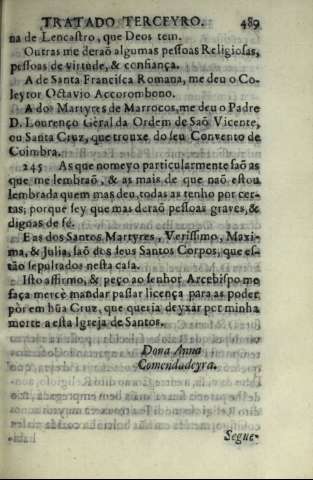 TRATADO TERCEYRO. 489
na de Lencastro, que Deos tem.
Outras me deraõ algumas pessoas Religiosas,
pessoas de virtude, & confiança.
A de Santa Francisca Romana, me deu o Co-
leytor Octavio Accorombono.
A dos Martyres de Marrocos, me deu o Padre
D. Lourenço Geral da Ordem de Saõ Vicente,
ou Santa Cruz, que trouxe do seu Convento de
Coimbra.
245 As que nomeyo particularmente saõ as
que me lembraõ, & as mais de que naõ estou
lembrada quem mas deu, todas as tenho por cer-
tas; porque sey que mas deraõ pessoas graves, &
dignas de fé.
E as dos Santos Martyres, Verissimo, Maxi-
ma, & Julia, saõ dos seus Santos Corpos, que es-
taõ sepultados nesta casa.
Isto affirmo, & peço ao senhor Arcebispo me
faça mercè mandar passar licença para as poder
pór em hũa Cruz, que queria deyxar por minha
morte a esta Igreja de Santos.
Dona Anna
Comendadeyra.
Segue-